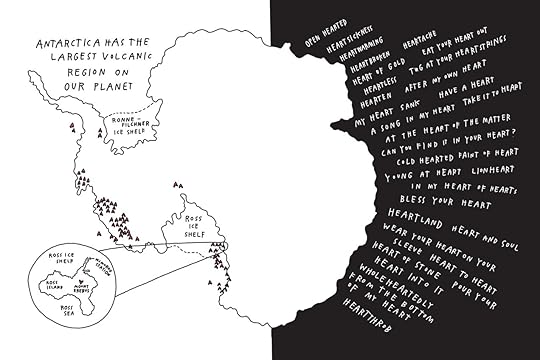 ANTARCTICA HAS THE
LARGEST VOLCANIC
REGION ON
OUR PLANET
RONNE-
FILCHNER
ICE SHELF
ROSS
ICE
SHELF
ROSS ICE
SHELF
MCMURDO
STATION
ROSS
ISLAND
MOUNT
EREBUS
ROSS
SEA
OPEN HEARTED
HEARTSICKNESS
HEARTWARMING HEARTACHE
HEARTBROKEN EAT YOUR HEART OUT
HEART OF GOLD TUG AT YOUR HEARTSTRINGS
HEARTLESS
HEARTEN AFTER MY OWN HEART
MY HEART SANK HAVE A HEART
A SONG IN MY HEART TAKE IT TO HEART
AT THE HEART OF THE MATTER
CAN YOU FIND IT IN YOUR HEART?
COLD HEARTED FAINT OF HEART
YOUNG AT HEART LIONHEART
IN MY HEART OF HEARTS
BLESS YOUR HEART
HEARTLAND HEART AND SOUL
WEAR YOUR HEART ON YOUR
SLEEVE HEART TO HEART
HEART OF STONE POUR YOUR
HEART INTO IT
WHOLEHEARTEDLY
FROM THE BOTTOM
OF MY HEART
HEARTTHROB